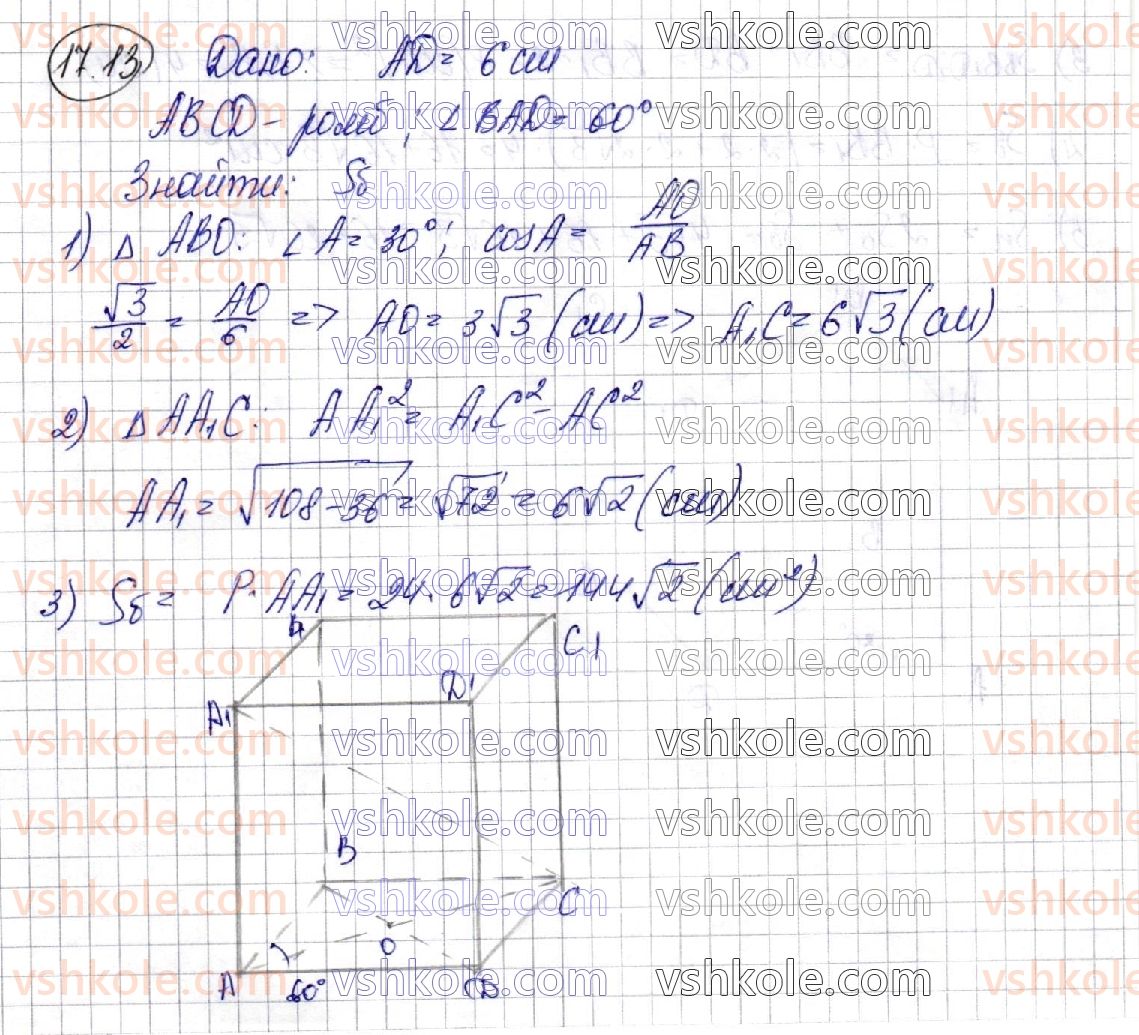 17.13 Дано: AD = 6 см
ABCD - ромб; ∠BAD = 60°
Знайти: Sб
1) △ ABO: ∠A = 30°; cosA = AO/AB
√3/2 = AO/6 => AO = 3√3 (см) => A₁C = 6√3 (см)
2) △ AA₁C: AA₁² = A₁C² - AC²
AA₁ = √(108 - 36) = √72 = 6√2 (см)
3) Sб = P · AA₁ = 24 · 6√2 = 144√2 (см²)
C₁
A₁ D₁
B
C
O
A 60° D
vshkole.com